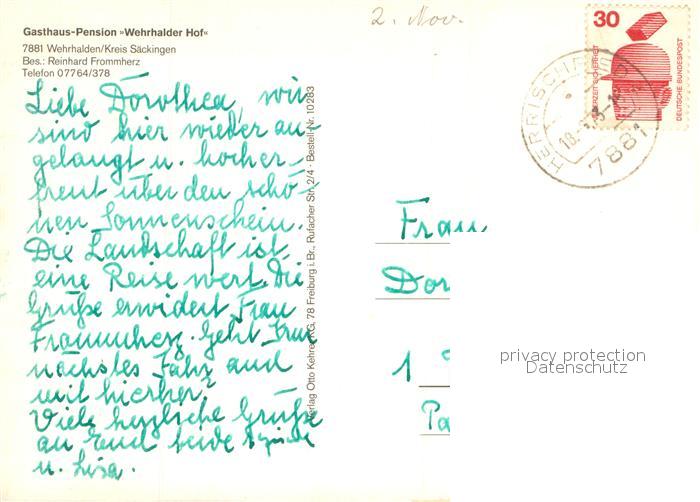 2. Nov.
Gasthaus-Pension »Wehrhalder Hof«
7881 Wehrhalden/Kreis Säckingen
Bes.: Reinhard Frommherz
Telefon 07764/378
Liebe Dorothea, wir
sind hier wieder an-
gelangt u. hocher-
freut über den schö-
nen Sonnenschein.
Die Landschaft ist
eine Reise wert. Die
Grüße erwidert Frau
Frommherz. Geht Ihr
nächstes Jahr auch
mit hierher?
Viele herzliche Grüße
an Euch beide
u. Lisa.
Verlag Otto Kehrer KG, 78 Freiburg i. Br., Rufacher Str. 2/4 · Bestell-Nr. 10 283
30
JEDERZEIT SICHERHEIT
DEUTSCHE BUNDESPOST
HERRISCHRIED
7881
Frau
Dor
1
Pa
privacy protection
Datenschutz